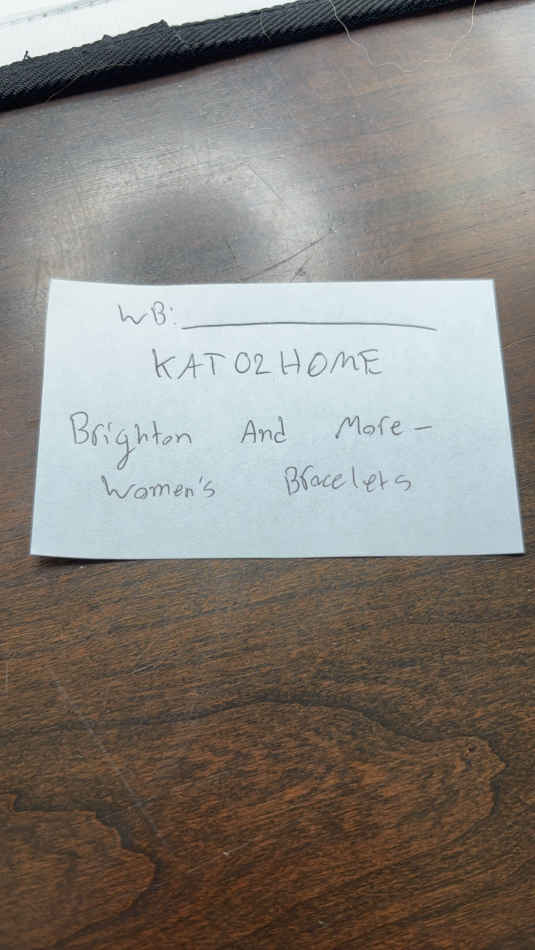 WB: ____________
KATO2HOME
Brighton And More -
Women's Bracelets